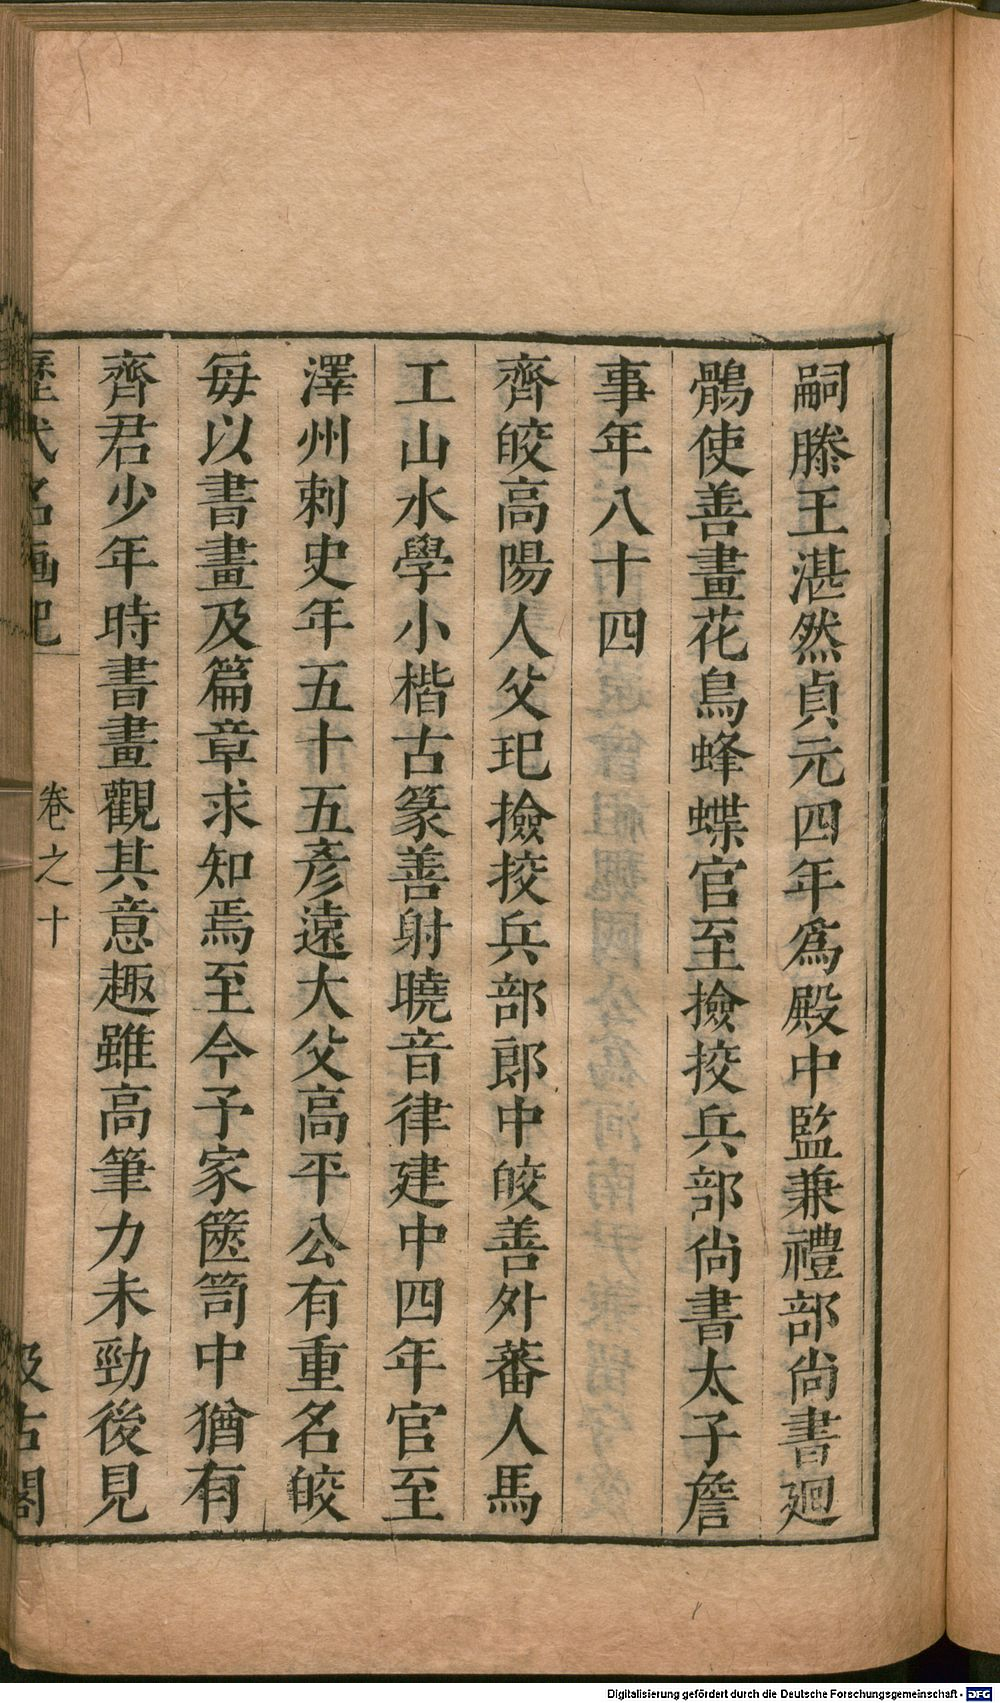 嗣滕王湛然貞元四年爲殿中監兼禮部尚書廻
鶻使善畫花鳥蜂蝶官至撿挍兵部尚書太子詹
事年八十四
齊皎高陽人父玘撿挍兵部郎中皎善外蕃人馬
工山水學小楷古篆善射曉音律建中四年官至
澤州刺史年五十五彥遠大父高平公有重名皎
毎以書畫及篇章求知焉至今予家篋笥中猶有
齊君少年時書畫觀其意趣雖高筆力未勁後見
歷代名画記 卷之十 汲古閣
Digitalisierung gefördert durch die Deutsche Forschungsgemeinschaft - DFG